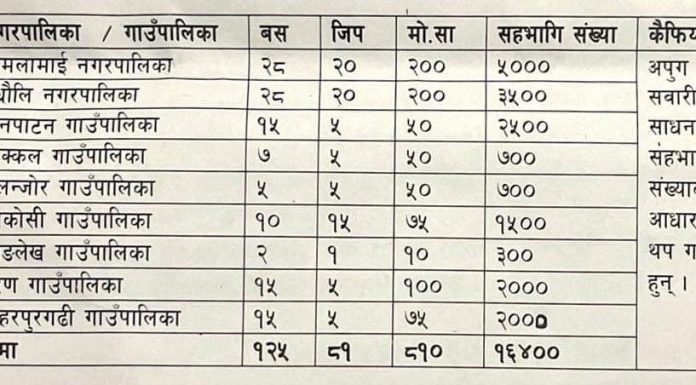 गरपालिका / गाउँपालिका बस जिप मो.सा सहभागि संख्या कैफिय
मलामाई नगरपालिका २८ २० २०० ५००० अपुग
धौलि नगरपालिका २८ २० २०० ३५०० सवारी
नपाटन गाउँपालिका १५ ५ ५० २५०० साधन
क्कल गाउँपालिका ७ ५ ५० ७०० संहभा
लन्जोर गाउँपालिका ५ ५ ५० ७०० संख्या
कोसी गाउँपालिका १० १५ ७५ १५०० आधार
ङलेख गाउँपालिका २ १ १० ३०० थप ग
रण गाउँपालिका १५ ५ १०० २००० हुन् ।
हरपुरगढी गाउँपालिका १५ ५ ७५ २०००
मा १२५ ८१ ८१० १६४००